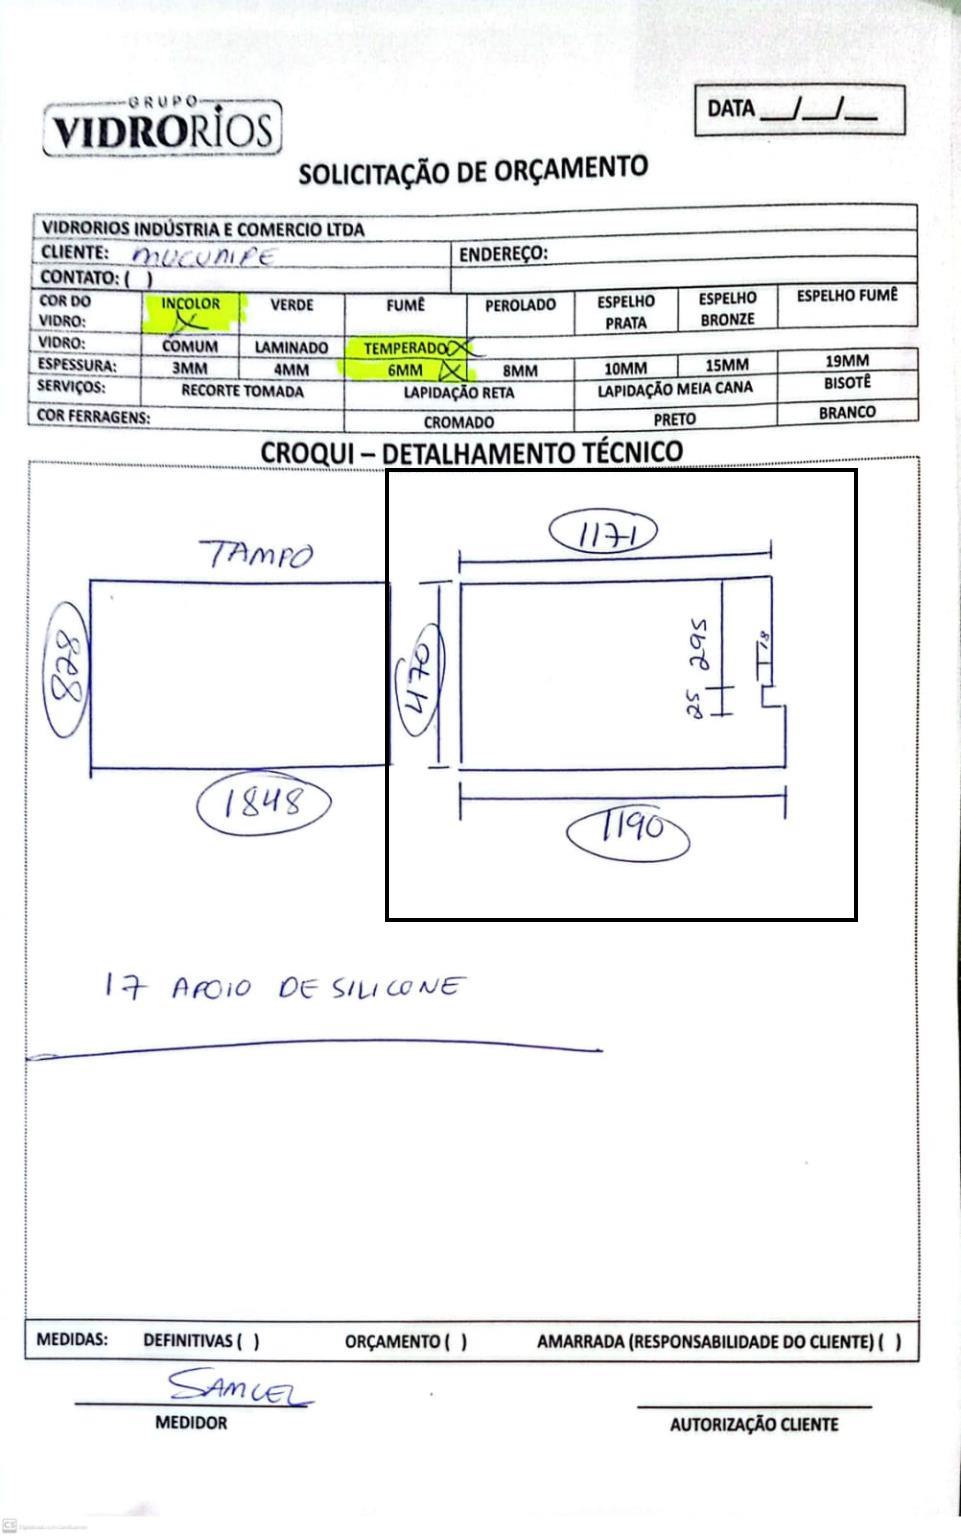 GRUPO
VIDRORIOS
DATA __/__/__
SOLICITAÇÃO DE ORÇAMENTO
VIDRORIOS INDÚSTRIA E COMERCIO LTDA
CLIENTE: MUCURIPE ENDEREÇO:
CONTATO: ( )
COR DO VIDRO: INCOLOR X VERDE FUMÊ PEROLADO ESPELHO PRATA ESPELHO BRONZE ESPELHO FUMÊ
VIDRO: COMUM LAMINADO TEMPERADO X
ESPESSURA: 3MM 4MM 6MM X 8MM 10MM 15MM 19MM
SERVIÇOS: RECORTE TOMADA LAPIDAÇÃO RETA LAPIDAÇÃO MEIA CANA BISOTÊ
COR FERRAGENS: CROMADO PRETO BRANCO
CROQUI – DETALHAMENTO TÉCNICO
TAMPO
828
1848
1171
470
295
18
25
1190
17 APOIO DE SILICONE
MEDIDAS: DEFINITIVAS ( ) ORÇAMENTO ( ) AMARRADA (RESPONSABILIDADE DO CLIENTE) ( )
SAMUEL
MEDIDOR
AUTORIZAÇÃO CLIENTE
CS